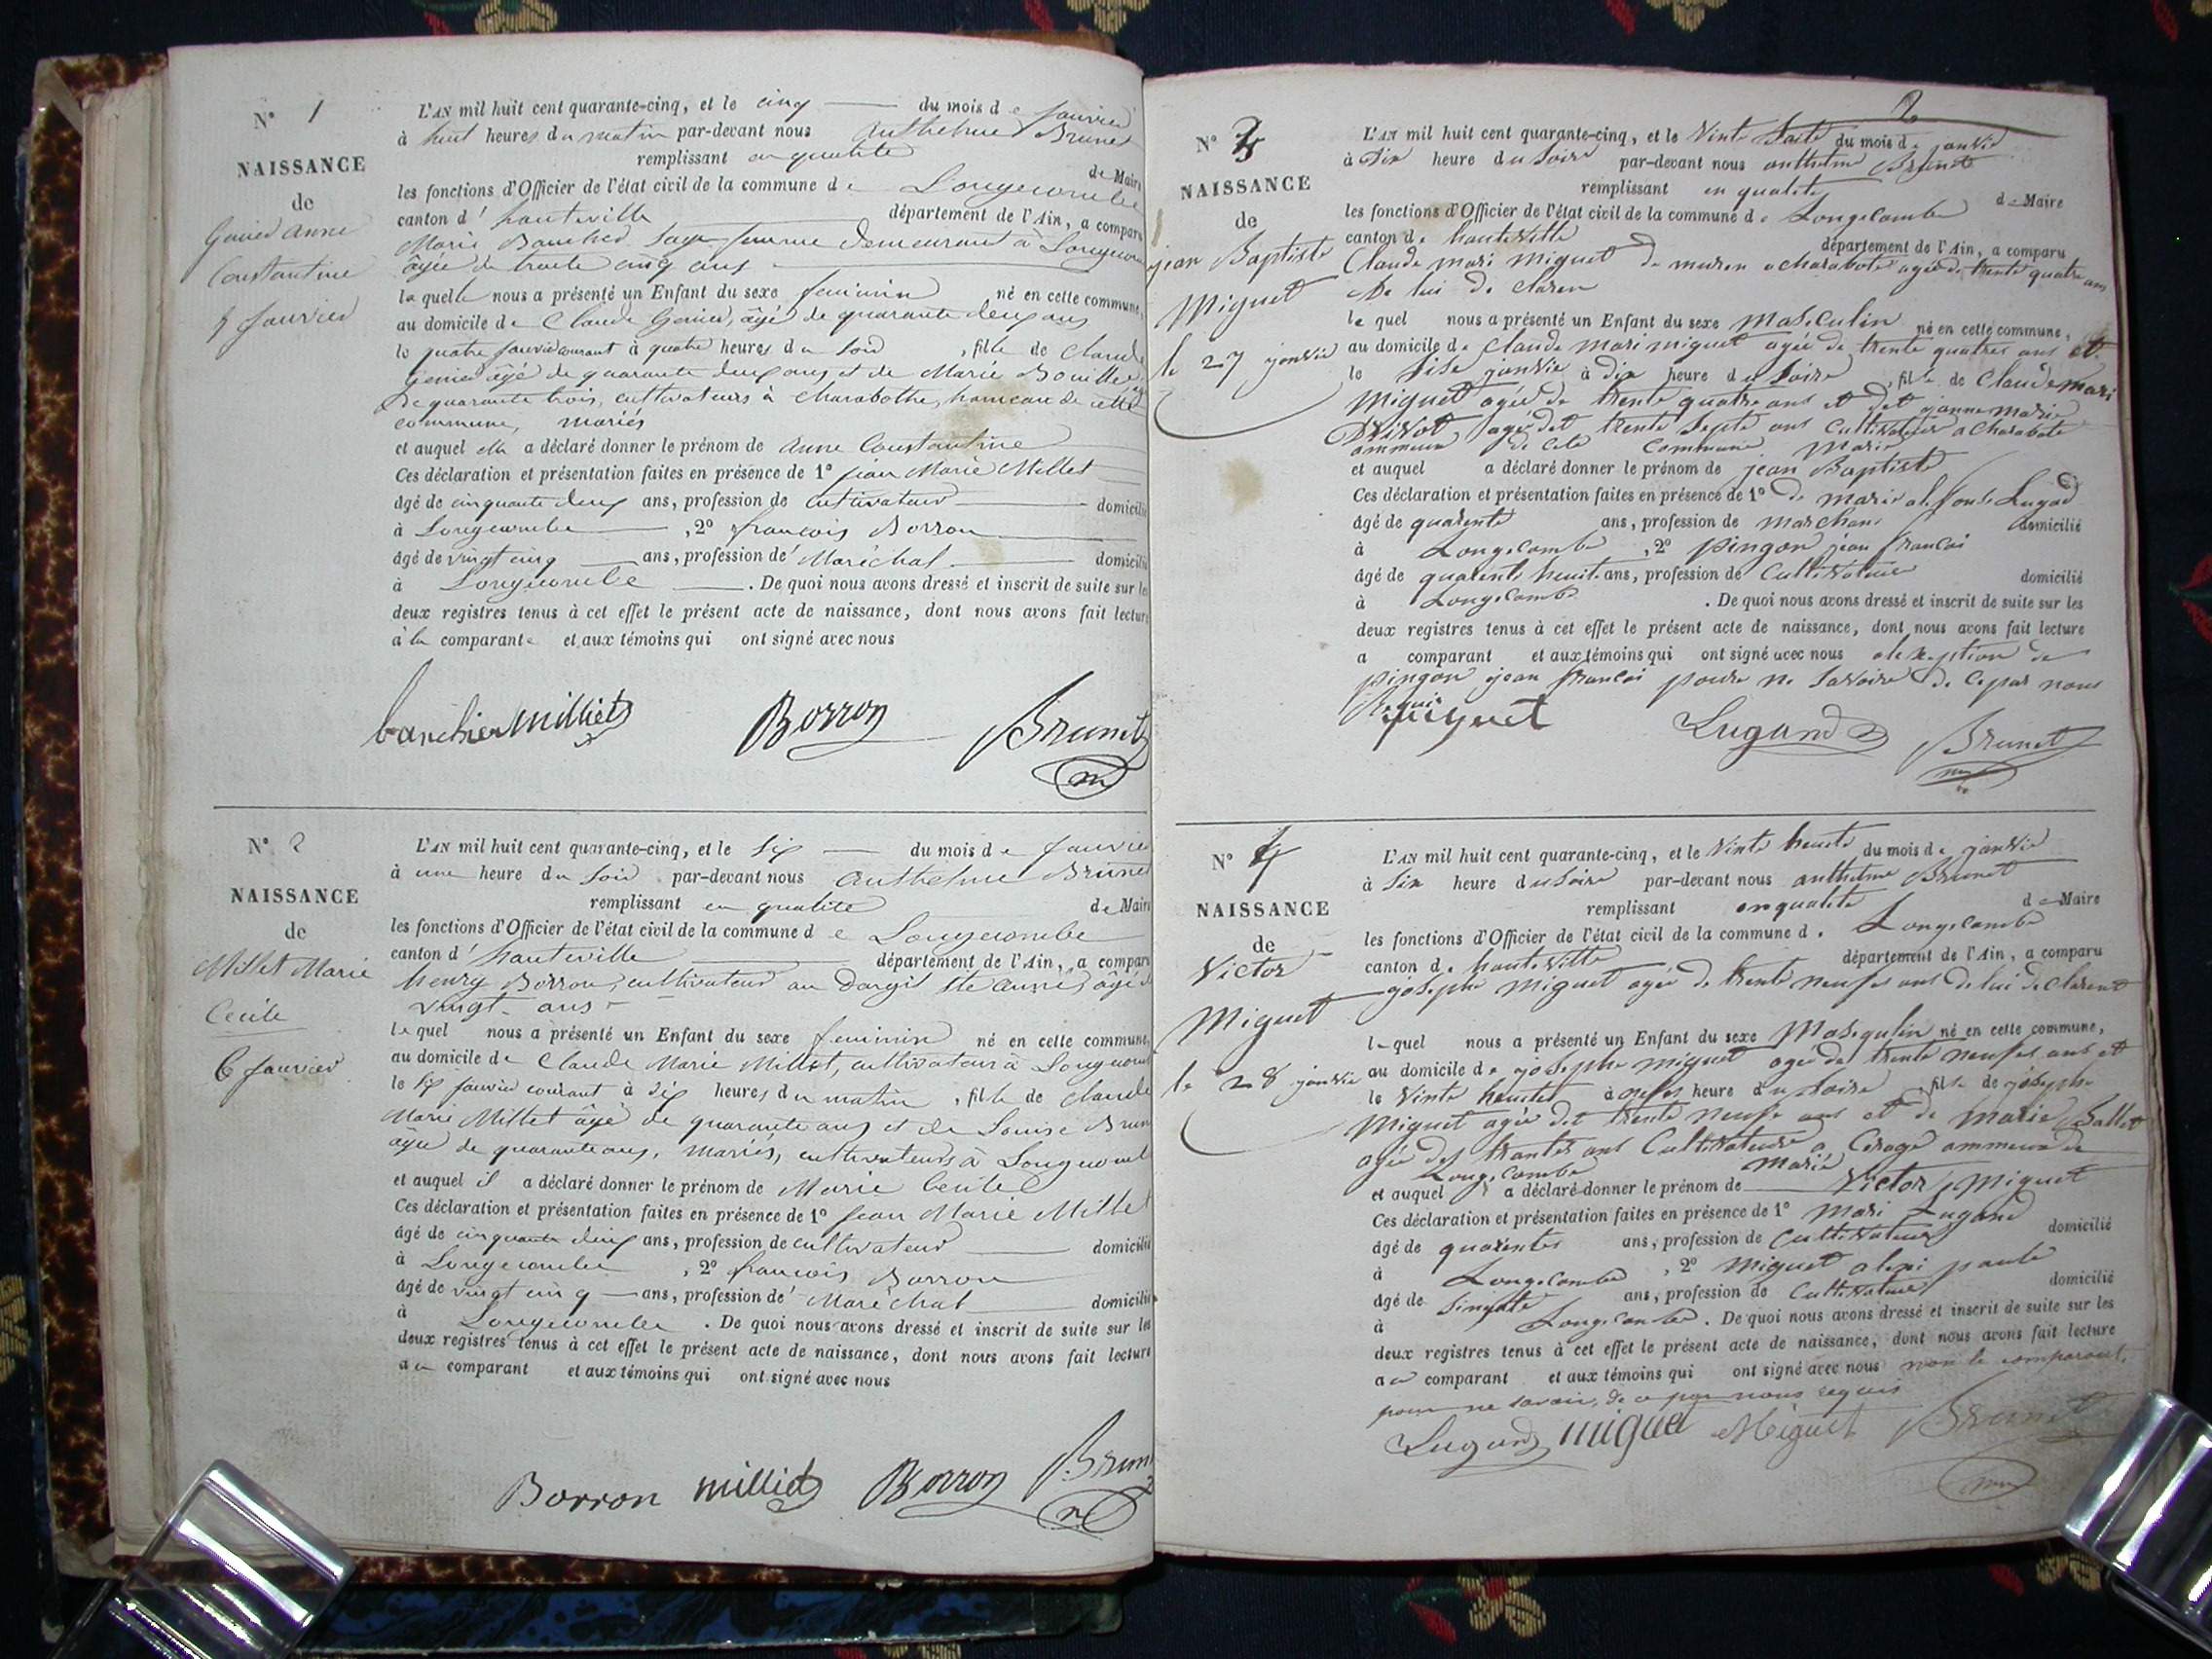 N° 1
NAISSANCE
de
Genied Anne
Constantine
5 Janvier
L'AN mil huit cent quarante-cinq, et le cinq du mois de Janvier
à huit heures du matin par-devant nous Anthelme Brunet
remplissant en qualité de Maire
les fonctions d'Officier de l'état civil de la commune de Longecombe
canton d'hauteville département de l'Ain, a comparu
Marie Bauched Sage-femme demeurant à Longecom
âgée de trente cinq ans
laquelle nous a présenté un Enfant du sexe feminin né en cette commune,
au domicile de Claude Genied, âgé de quarante deux ans
le quatre Janvier courant à quatre heures du Soir, fille de Claude
Genied âgé de quarante deux ans et de Marie Bouillet
de quarante trois, cultivateurs à Charabothe, hameau de cette
commune, mariés
et auquel elle a déclaré donner le prénom de Anne Constantine
Ces déclaration et présentation faites en présence de 1° Jean Marie Millet
âgé de cinquante deux ans, profession de cultivateur domicilié
à Longecombe, 2° françois Borron
âgé de vingt cinq ans, profession de Maréchal domicilié
à Longecombe. De quoi nous avons dressé et inscrit de suite sur les
deux registres tenus à cet effet le présent acte de naissance, dont nous avons fait lecture
à la comparante et aux témoins qui ont signé avec nous
banchier milliet Borron Brunet
N° 2
NAISSANCE
de
Millet Marie
Cecile
6 Janvier
L'AN mil huit cent quarante-cinq, et le Six du mois de Janvier
à une heure du Soir par-devant nous Anthelme Brunet
remplissant en qualité de Maire
les fonctions d'Officier de l'état civil de la commune de Longecombe
canton d'hauteville département de l'Ain, a comparu
henry Borron, cultivateur au Dargil Ste Anne, âgé de
vingt ans
lequel nous a présenté un Enfant du sexe feminin né en cette commune,
au domicile de Claude Marie Millet, cultivateur à Longecom
le Six Janvier courant à Six heures du matin, fille de Claude
Marie Millet âgé de quarante ans et de Louise Brun
âgée de quarante ans, mariés, cultivateurs à Longecombe
et auquel il a déclaré donner le prénom de Marie Cecile
Ces déclaration et présentation faites en présence de 1° Jean Marie Millet
âgé de cinquante deux ans, profession de cultivateur domicilié
à Longecombe, 2° françois Borron
âgé de vingt cinq ans, profession de Maréchal domicilié
à Longecombe. De quoi nous avons dressé et inscrit de suite sur les
deux registres tenus à cet effet le présent acte de naissance, dont nous avons fait lecture
au comparant et aux témoins qui ont signé avec nous
Borron milliet Borron Brunet
2
N° 3
NAISSANCE
de
jean Baptiste
Miguet
le 27 janvié
L'AN mil huit cent quarante-cinq, et le Vinte Saite du mois de janvié
à Six heure du Soire par-devant nous anthelme Brunet
remplissant en qualité de Maire
les fonctions d'Officier de l'état civil de la commune de Longecombe
canton de hauteville département de l'Ain, a comparu
Claude mari Miguet de muren a charabote agée de trente quatre ans
De lui de claren
lequel nous a présenté un Enfant du sexe masiculin né en cette commune,
au domicile de Claude mari miguet agée de trente quatres ans et
le Sise janvié à dix heure du Soire, fils de Claude mari
Miguet agée de trente quatre ans et det jeanne marie
Drivot agée det trente Septe ans Cultivateur a Charabote
ommeau de cete Commune Marie
et auquel a déclaré donner le prénom de jean Baptiste
Ces déclaration et présentation faites en présence de 1° de marie alefonse Lugad
âgé de quarente ans, profession de marchant domicilié
à Longecombe, 2° Pingon jean françoi
âgé de quarente heuit ans, profession de Cultivateur domicilié
à Longecombe. De quoi nous avons dressé et inscrit de suite sur les
deux registres tenus à cet effet le présent acte de naissance, dont nous avons fait lecture
a comparant et aux témoins qui ont signé avec nous alexeption de
Pingon jean françoi poure ne Savoire de cepar nous
Requi
Miguet Lugand Brunet
N° 4
NAISSANCE
de
Victor
Miguet
le 28 janvie
L'AN mil huit cent quarante-cinq, et le Vinte heuite du mois de janvié
à Six heure du Soire par-devant nous anthelme Brunet
remplissant en qualité de Maire
les fonctions d'Officier de l'état civil de la commune de Longecombe
canton de hauteville département de l'Ain, a comparu
josephe Miguet agée de trente neufes ans de lui de clarent
lequel nous a présenté un Enfant du sexe Masiqulin né en cette commune,
au domicile de josephe miguet agée de trente neufes ans et
le Vinte heuitet à neufes heure du Soire, fils de josephe
Miguet agée det trente neufe ans et de Marie Ballet
agée des trantes ans Cultivateure a Cirage ommeau de
Longecombe Marié
et auquel a déclaré donner le prénom de Victor Miguet
Ces déclaration et présentation faites en présence de 1° Mari Lugand
âgé de quarentes ans, profession de Cultivateur domicilié
à Longecombe, 2° Miguet alexi paule
âgé de Sinqante ans, profession de Cultivateur domicilié
à Longecombe. De quoi nous avons dressé et inscrit de suite sur les
deux registres tenus à cet effet le présent acte de naissance, dont nous avons fait lecture
au comparant et aux témoins qui ont signé avec nous non le comparant,
pour ne savoir, de ce par nous requis
Lugand miguet Miguet Brunet